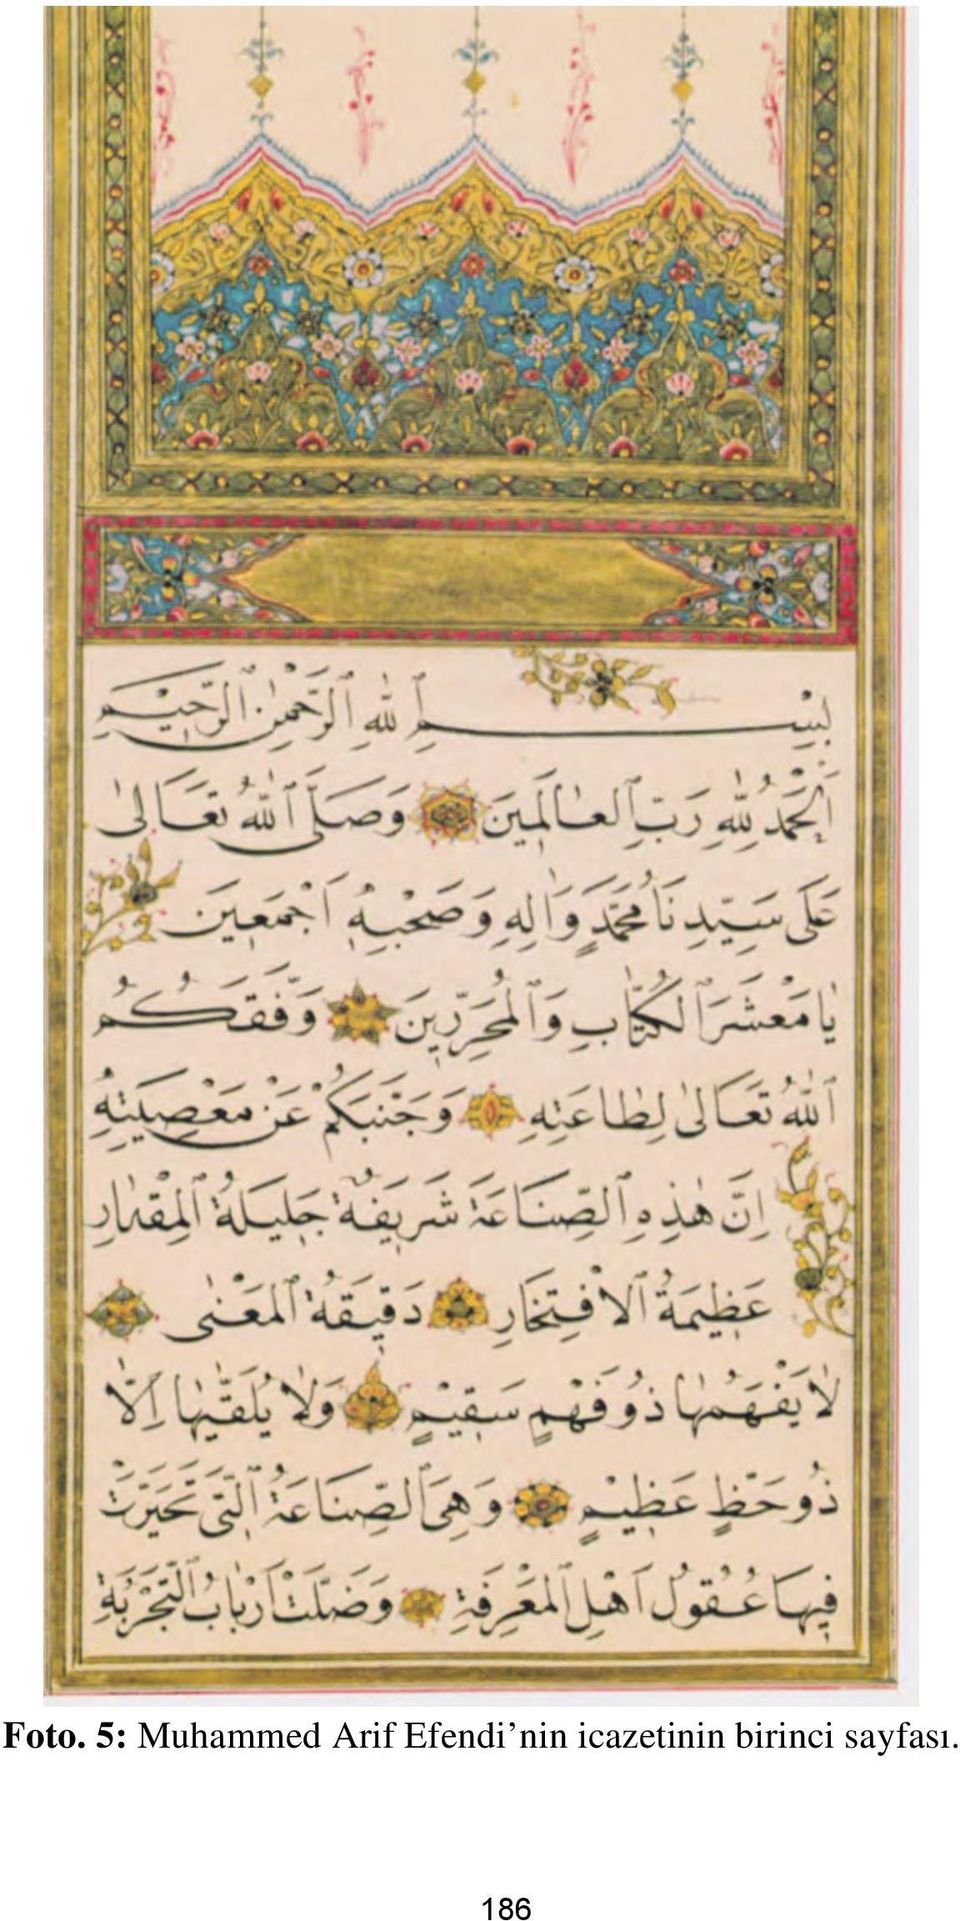 بِسْمِ اللهِ الرَّحْمٰنِ الرَّحِيمِ
اَلْحَمْدُ لِلّٰهِ رَبِّ الْعَالَمِينَ وَصَلَّى اللهُ تَعَالٰى
عَلٰى سَيِّدِنَا مُحَمَّدٍ وَاٰلِهِ وَصَحْبِهِ اَجْمَعِينَ
يَا مَعْشَرَ الْكُتَّابِ وَالْمُحَرِّرِينَ وَفَّقَكُمُ
اللهُ تَعَالٰى لِطَاعَتِهِ وَجَنَّبَكُمْ عَنْ مَعْصِيَتِهِ
اِنَّ هٰذِهِ الصِّنَاعَةَ شَرِيفَةٌ جَلِيلَةُ الْمِقْدَارِ
عَظِيمَةُ الْاِفْتِخَارِ دَقِيقَةُ الْمَعْنٰى
لَا يَفْهَمُهَا ذُو فَهْمٍ سَقِيمٍ وَلَا يُلَقّٰيهَا اِلَّا
ذُو حَظٍّ عَظِيمٍ وَهِيَ الصِّنَاعَةُ الَّتِي تَحَيَّرَتْ
فِيهَا عُقُولُ اَهْلِ الْمَعْرِفَةِ وَضَلَّتْ اَرْبَابُ التَّجْرُبَةِ
Foto. 5: Muhammed Arif Efendi’nin icazetinin birinci sayfası.
186